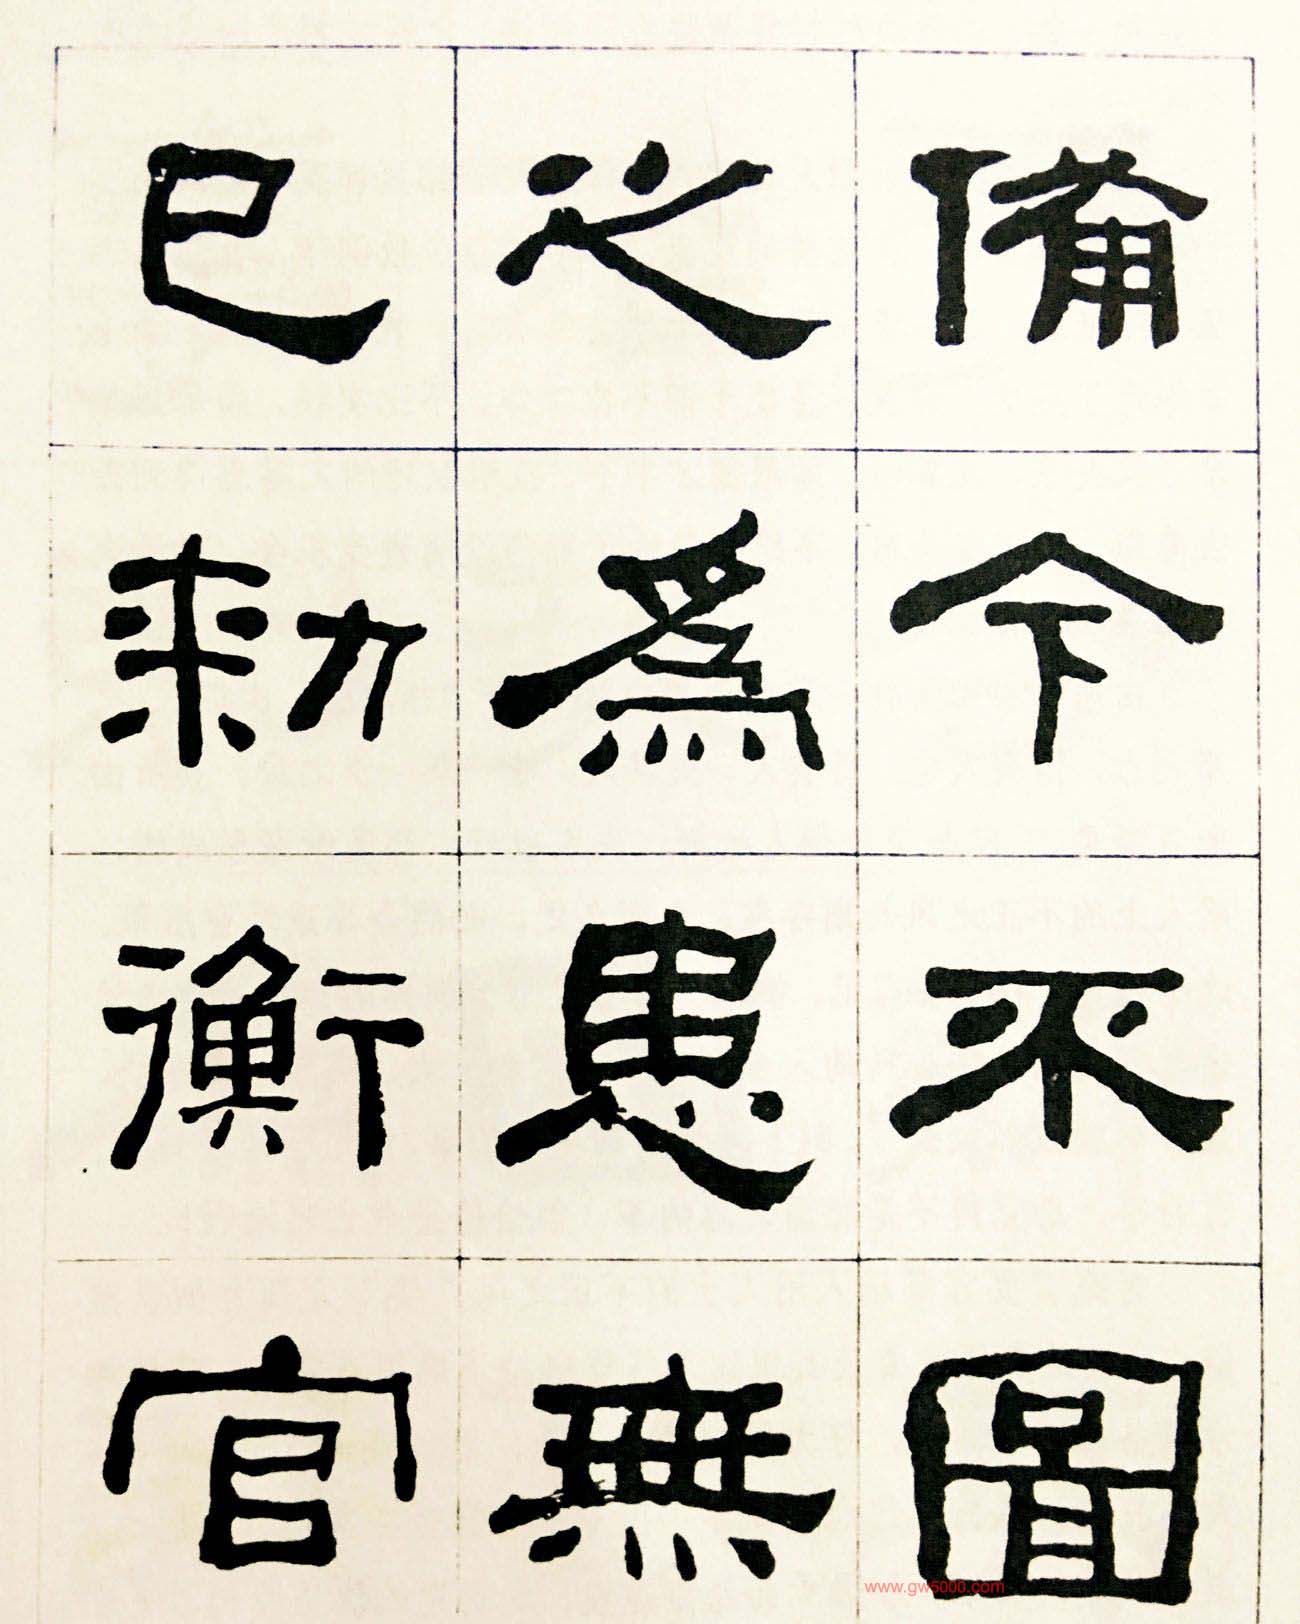 備今不圖
之為患無
已勑衡官
www.gw5000.com